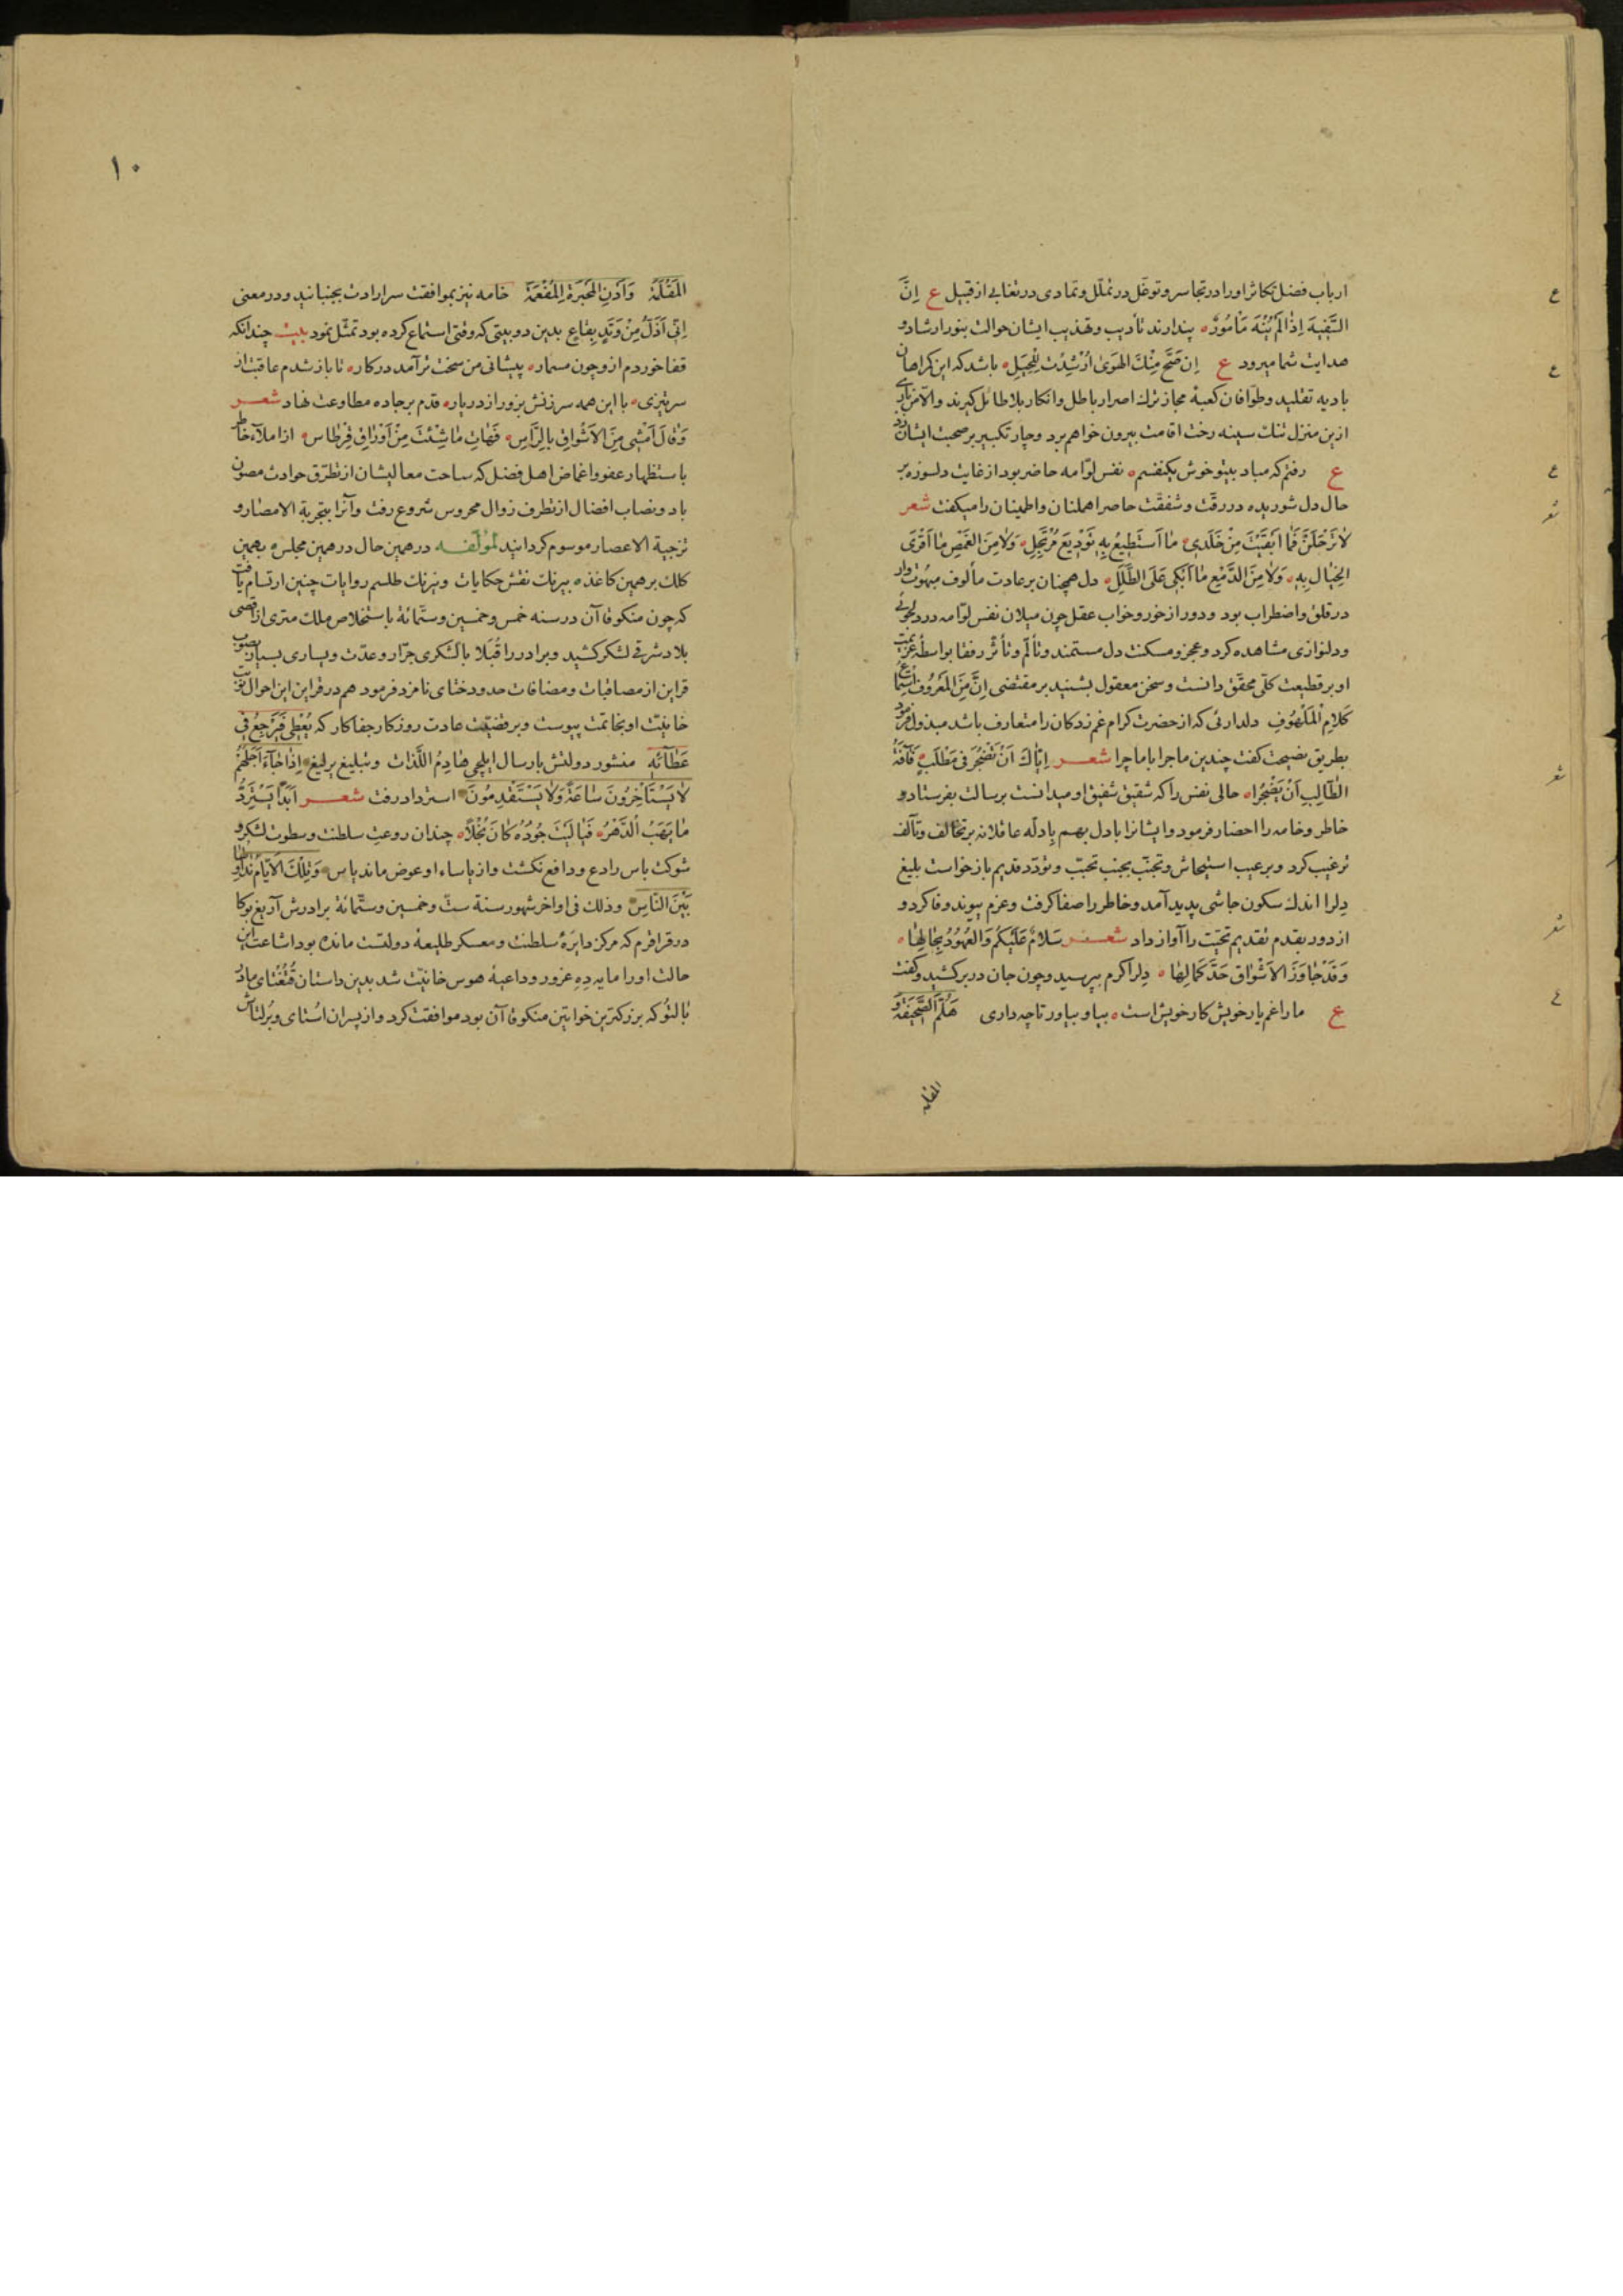 ارباب فضل تکاثر او را در تجاسر و توغّل در تملّل و تمادی در تغابی از قبیل ع اِنَّ
السَّفِيهَ اِذٰا لَمْ يُنْهَ مَأْمُورٌ پندارند تأدیب و تهذیب ایشان حوالت بنور ارشاد و
هدایت شما میرود ع اِن صَحَّ مِنْكَ الهَوَىٰ اُرْشِدْتَ لِلْحِيَلِ باشد که این گمراهان
بادیه تقلید و طوّافان کعبهٔ مجاز ترك اصرار باطل و انکار بلاطائل کیرند والّا من بار
ازین منزل تنك سینه رخت اقامت بیرون خواهم برد و چار تکبیر بر صحبت ایشان زد
ع رفتم که مباد بیتو خوش یکنفسم نفس لوّامه حاضر بود از غایت دلسوزه بر
حال دل شوریده در رقّت و شفقّت حاصر اهلنان و اطمینان را میکفت شعر
لاٰ تَرْحَلَنَّ فَمٰا اَبْقَيْتَ مِنْ خَلَدِى مٰا اَسْتَطِيعُ بِهِ تَوْدِيعَ مُرْتَحِلِ وَلاٰ مِنَ الغَمْضِ مٰا اَقْرَى
الخِيٰالَ بِهِ وَلاٰ مِنَ الدَّمْعِ مٰا اَبْكِى عَلَى الطَّلَلِ دل همچنان بر عادت مألوف مبهوت وار
در قلق و اضطراب بود و دور از خور و خواب عقل چون میلان نفس لوّامه در دلجوئی
و دلنوازی مشاهده کرد و عجز و مسکنت دل مستمند و تألّم و تأثّر رفقا بواسطه عزیمت
او بر قطیعت کلّی محقّق دانست و سخن معقول بشنید بر مقتضی اِنَّ مِنَ المَعْرُوفِ اسْتِمٰاعَ
كَلاٰمِ الْمَلْهُوفِ دلداری که از حضرت کرام غم زدکان را متعارف باشد مبذول فرمود
بطریق نصیحت کفت چندین ماجرا با ما چرا شعر اِيّٰاكَ اَنْ تَضْجُرَ فِى مَطْلَبٍ فَآفَةُ
الطّٰالِبِ اَنْ يَضْجُرٰا حالی نفس را که شقیق شفیق او میدانست برسالت بفرستاد و
خاطر و خامه را احضار فرمود و ایشانرا با دل بهم بادلّه عاقلانه بر تخالف و تآلف
ترغیب کرد و بر عیب استیحاش و تجنّب بجنب تحبّب و تودّد قدیم بازخواست بلیغ
دل را اندك سکون جاشی پدید آمد و خاطر را صفا کرفت و عزم پیوند وفا کرد و
از دور بقدم تقدیم تحیّت را آواز داد شعر سَلاٰمٌ عَلَيْكُم وَالعُهُودُ بِحٰالِهٰا
وَقَدْ جٰاوَزَ الاَشْوٰاقُ حَدَّ كَمٰالِهٰا دل را کرم بپرسید و چون جان در بر کشید و کفت
ع ما را غم یار خویش کار خویش است بیا و بیاور تا چه داری هَلُمَّ الصَّحِيفَةَ وَ
المقلمه
١٠
المَقْلَمَةَ وَاَدْنِ المَحْبَرَةَ المُفْعَمَةَ خامه نیز بموافقت سر ارادت بجنبانید و در معنی
اِنِّى اَذَلُّ مِنْ وَتَدٍ بِقٰاعٍ بدین دو بیتی که وقتی استماع کرده بود تمثّل نمود بیت چندانکه
قفا خوردم از و چون مسمار پیشانی من سخت تر آمد در کار تا باز شدم عاقبت از
سر تیزی با این همه سرزنش بزور از در یار قدم بر جاده مطاوعت نهاد شعر
وَقٰالَ اَمْشِى مِنَ الاَشْوٰاقِ بِالرَّاْسِ فَهٰاتِ مٰا شِئْتَ مِنْ اَوْرٰاقِ قِرْطٰاسِ از املاء خاطر
باستظهار عفو و اغماض اهل فضل که ساحت معالیشان از تطرّق حوادث مصون
باد و نصاب افضال از تطرف زوال محروس شروع رفت و آنرا بتجریة الامصار و
تزجیة الاعصار موسوم کردانید لمؤلّفه در همین حال در همین مجلس بهمین
کلك بر همین کاغذ بیرنك نقش حکایات و نیرنك طلسم روایات چنین ارتسام یافت
که چون منکوقاآن در سنه خمس و خمسین و ستّمائة باستخلاص ملك متری از اقصی
بلاد شرقی لشکر کشید و برادر را قُبلا با لشکری جرّار و عدّت و یساری بسیار بصوب
قراین از مصاقبات و مضافات حدود ختای نامزد فرمود هم در قراین این احوال نوبت
خانیّت او بخاتمت پیوست و بر قضیّت عادت روزکار جفاکار که يُعْطِى فَيَرْجِعُ فِى
عَطٰائِهِ منشور دولتش بارسال ایلچی هٰادِمُ اللَّذّات و تبلیغ یرلیغ اِذٰا جٰآءَ اَجَلُهُمْ
لاٰ يَسْتَأْخِرُونَ سٰاعَةً وَلاٰ يَسْتَقْدِمُونَ استرداد رفت شعر اَبَدًا يَسْتَرِدُّ
مٰا يَهَبُ الدَّهْرُ فَيٰا لَيْتَ جُودَهُ كٰانَ بُخْلاً چندان روعت سلطنت و سطوت لشکر و
شوکت باس رادع و دافع نکشت و از یاساء او عوض ماند یاس وَتِلْكَ الاَيّٰامُ نُدٰاوِلُهٰا
بَيْنَ النّٰاسِ وذلك فی اواخر شهور سنة ستّ و خمسین و ستّمائة برادرش آریغ بوکا
در قراقرم که مرکز دایرهٔ سلطنت و معسکر طلیعهٔ دولتست مانده بود اشاعت این
حالت او را مایه دِهِ غرور و داعیهٔ هوس خانیّت شد بدین داستان قُتُغْتای مادر
نالتو که بزرکترین خواتین منکوقاآن بود موافقت کرد و از پسران اُستای و